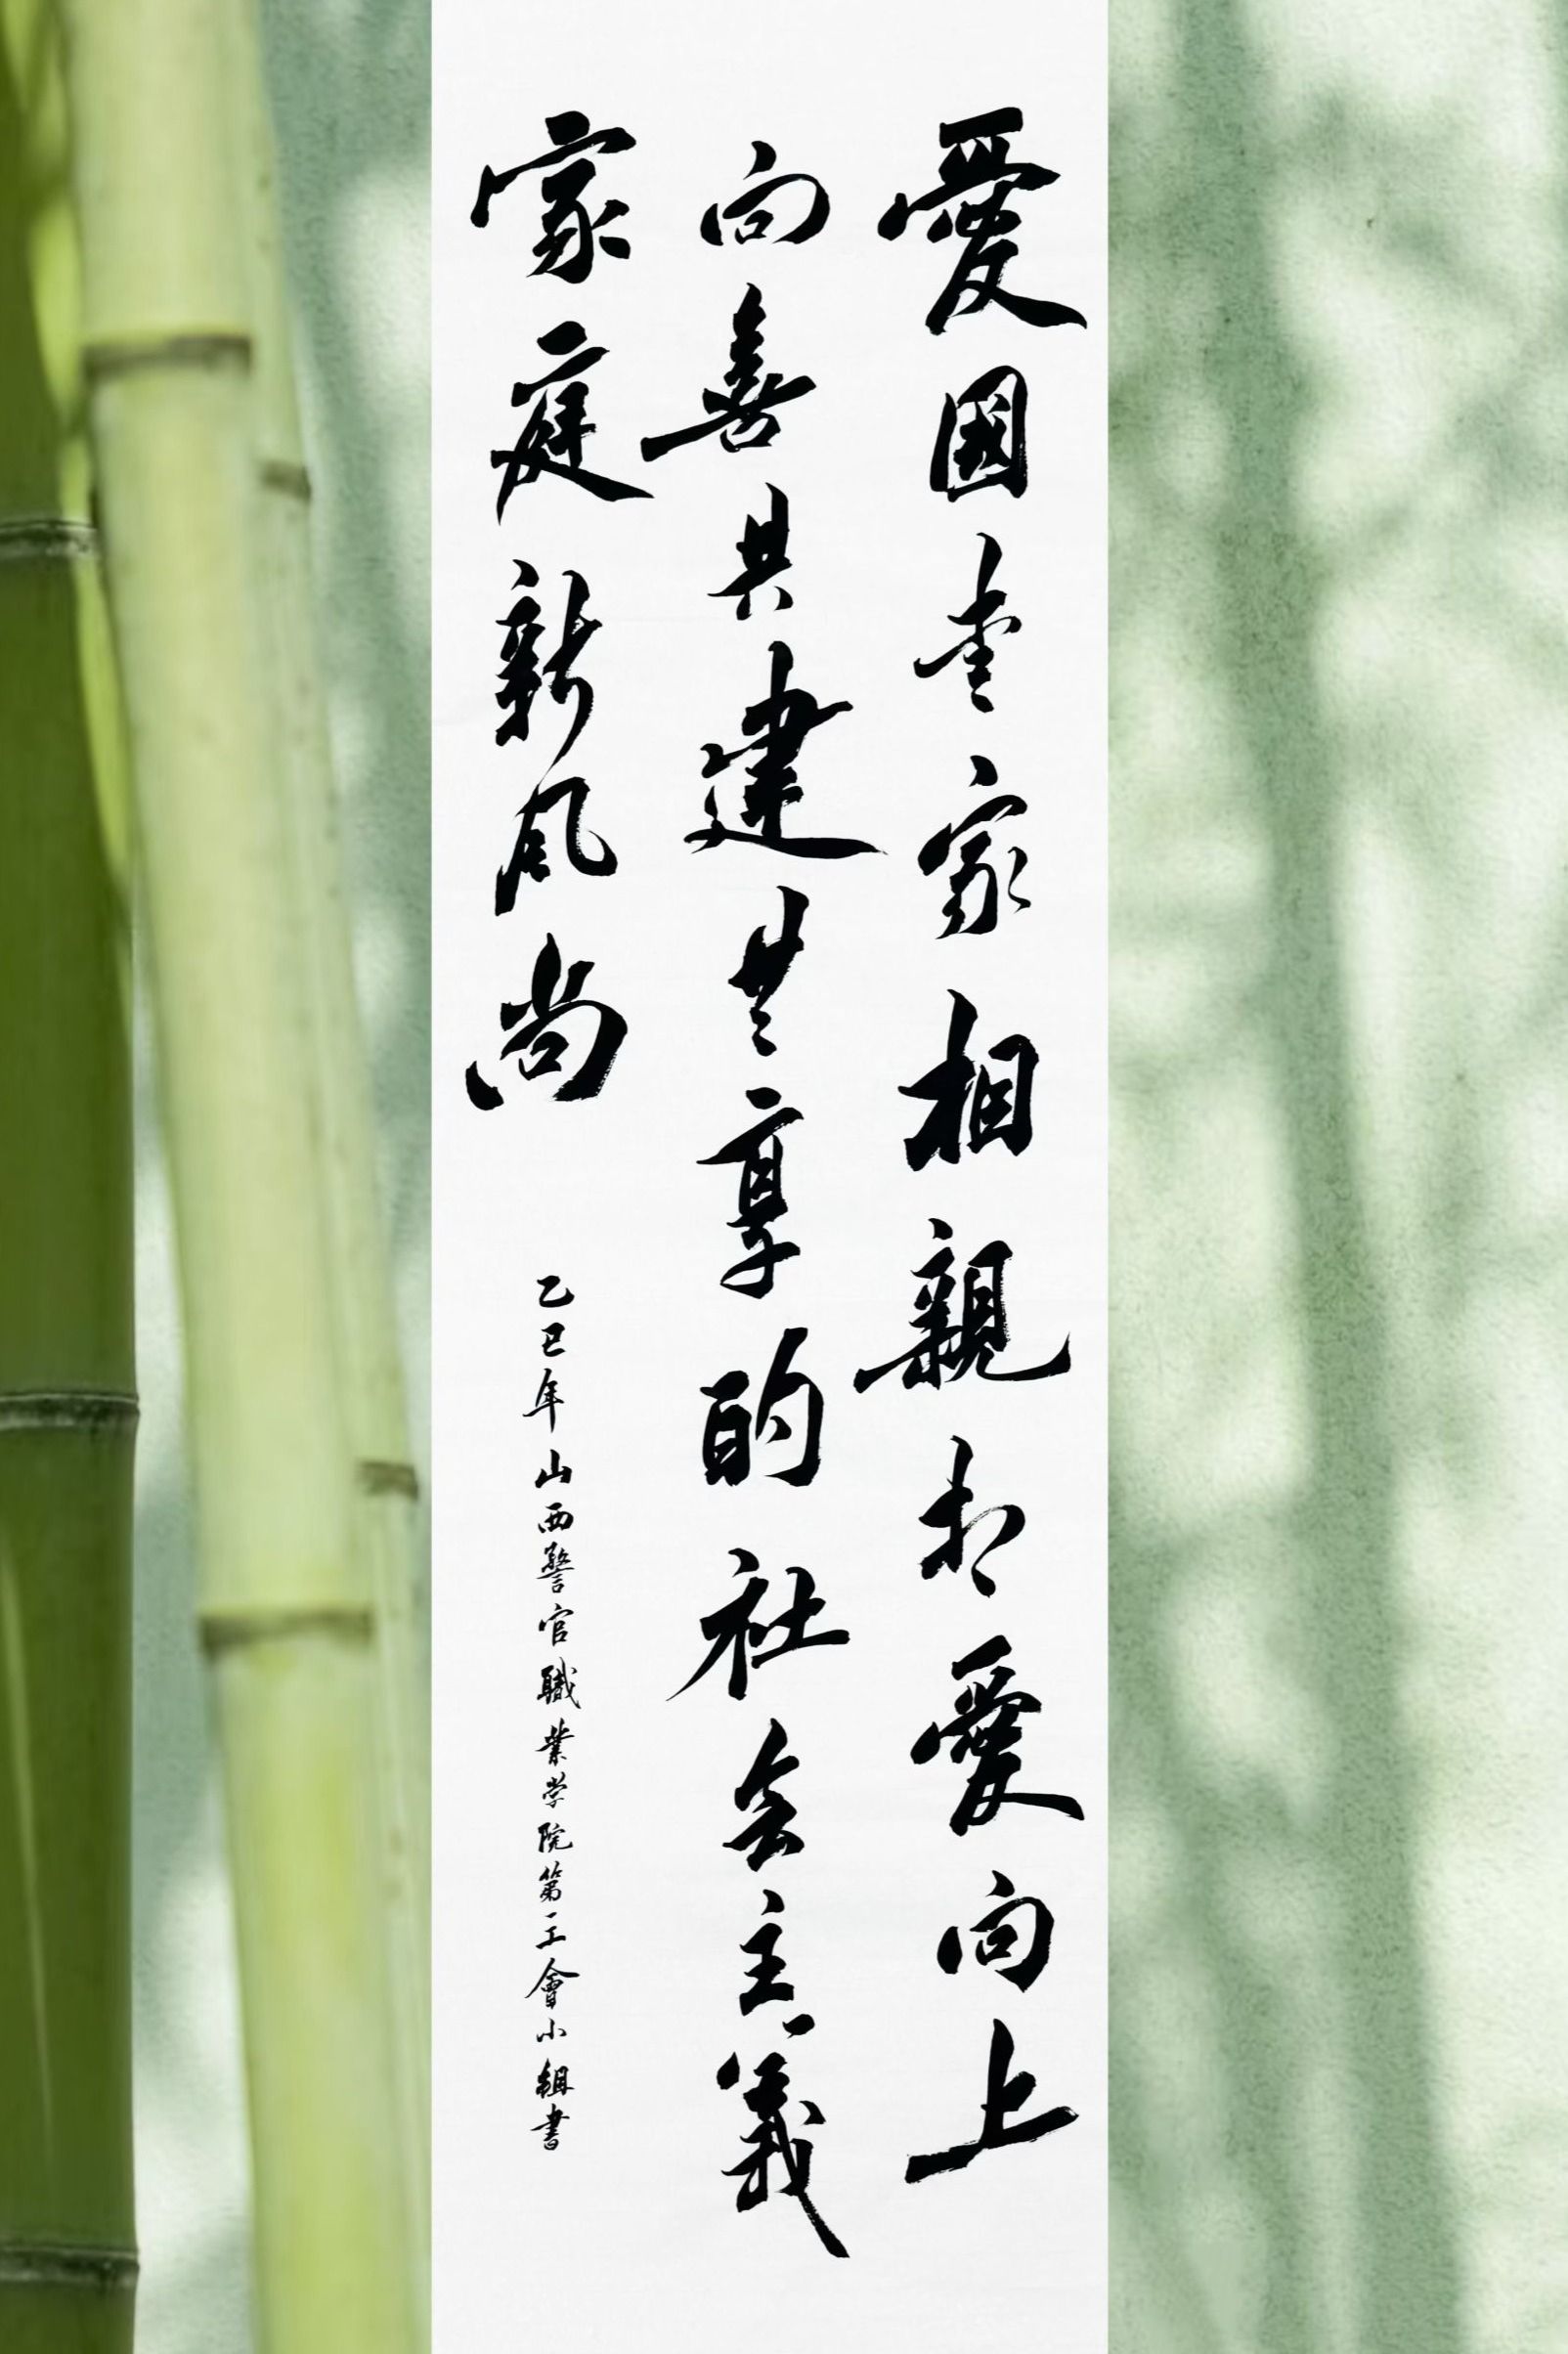 愛國爱家相親相愛向上
向善共建共享的社会主義
家庭新风尚
乙巳年山西警官職業学院第一工會小組書